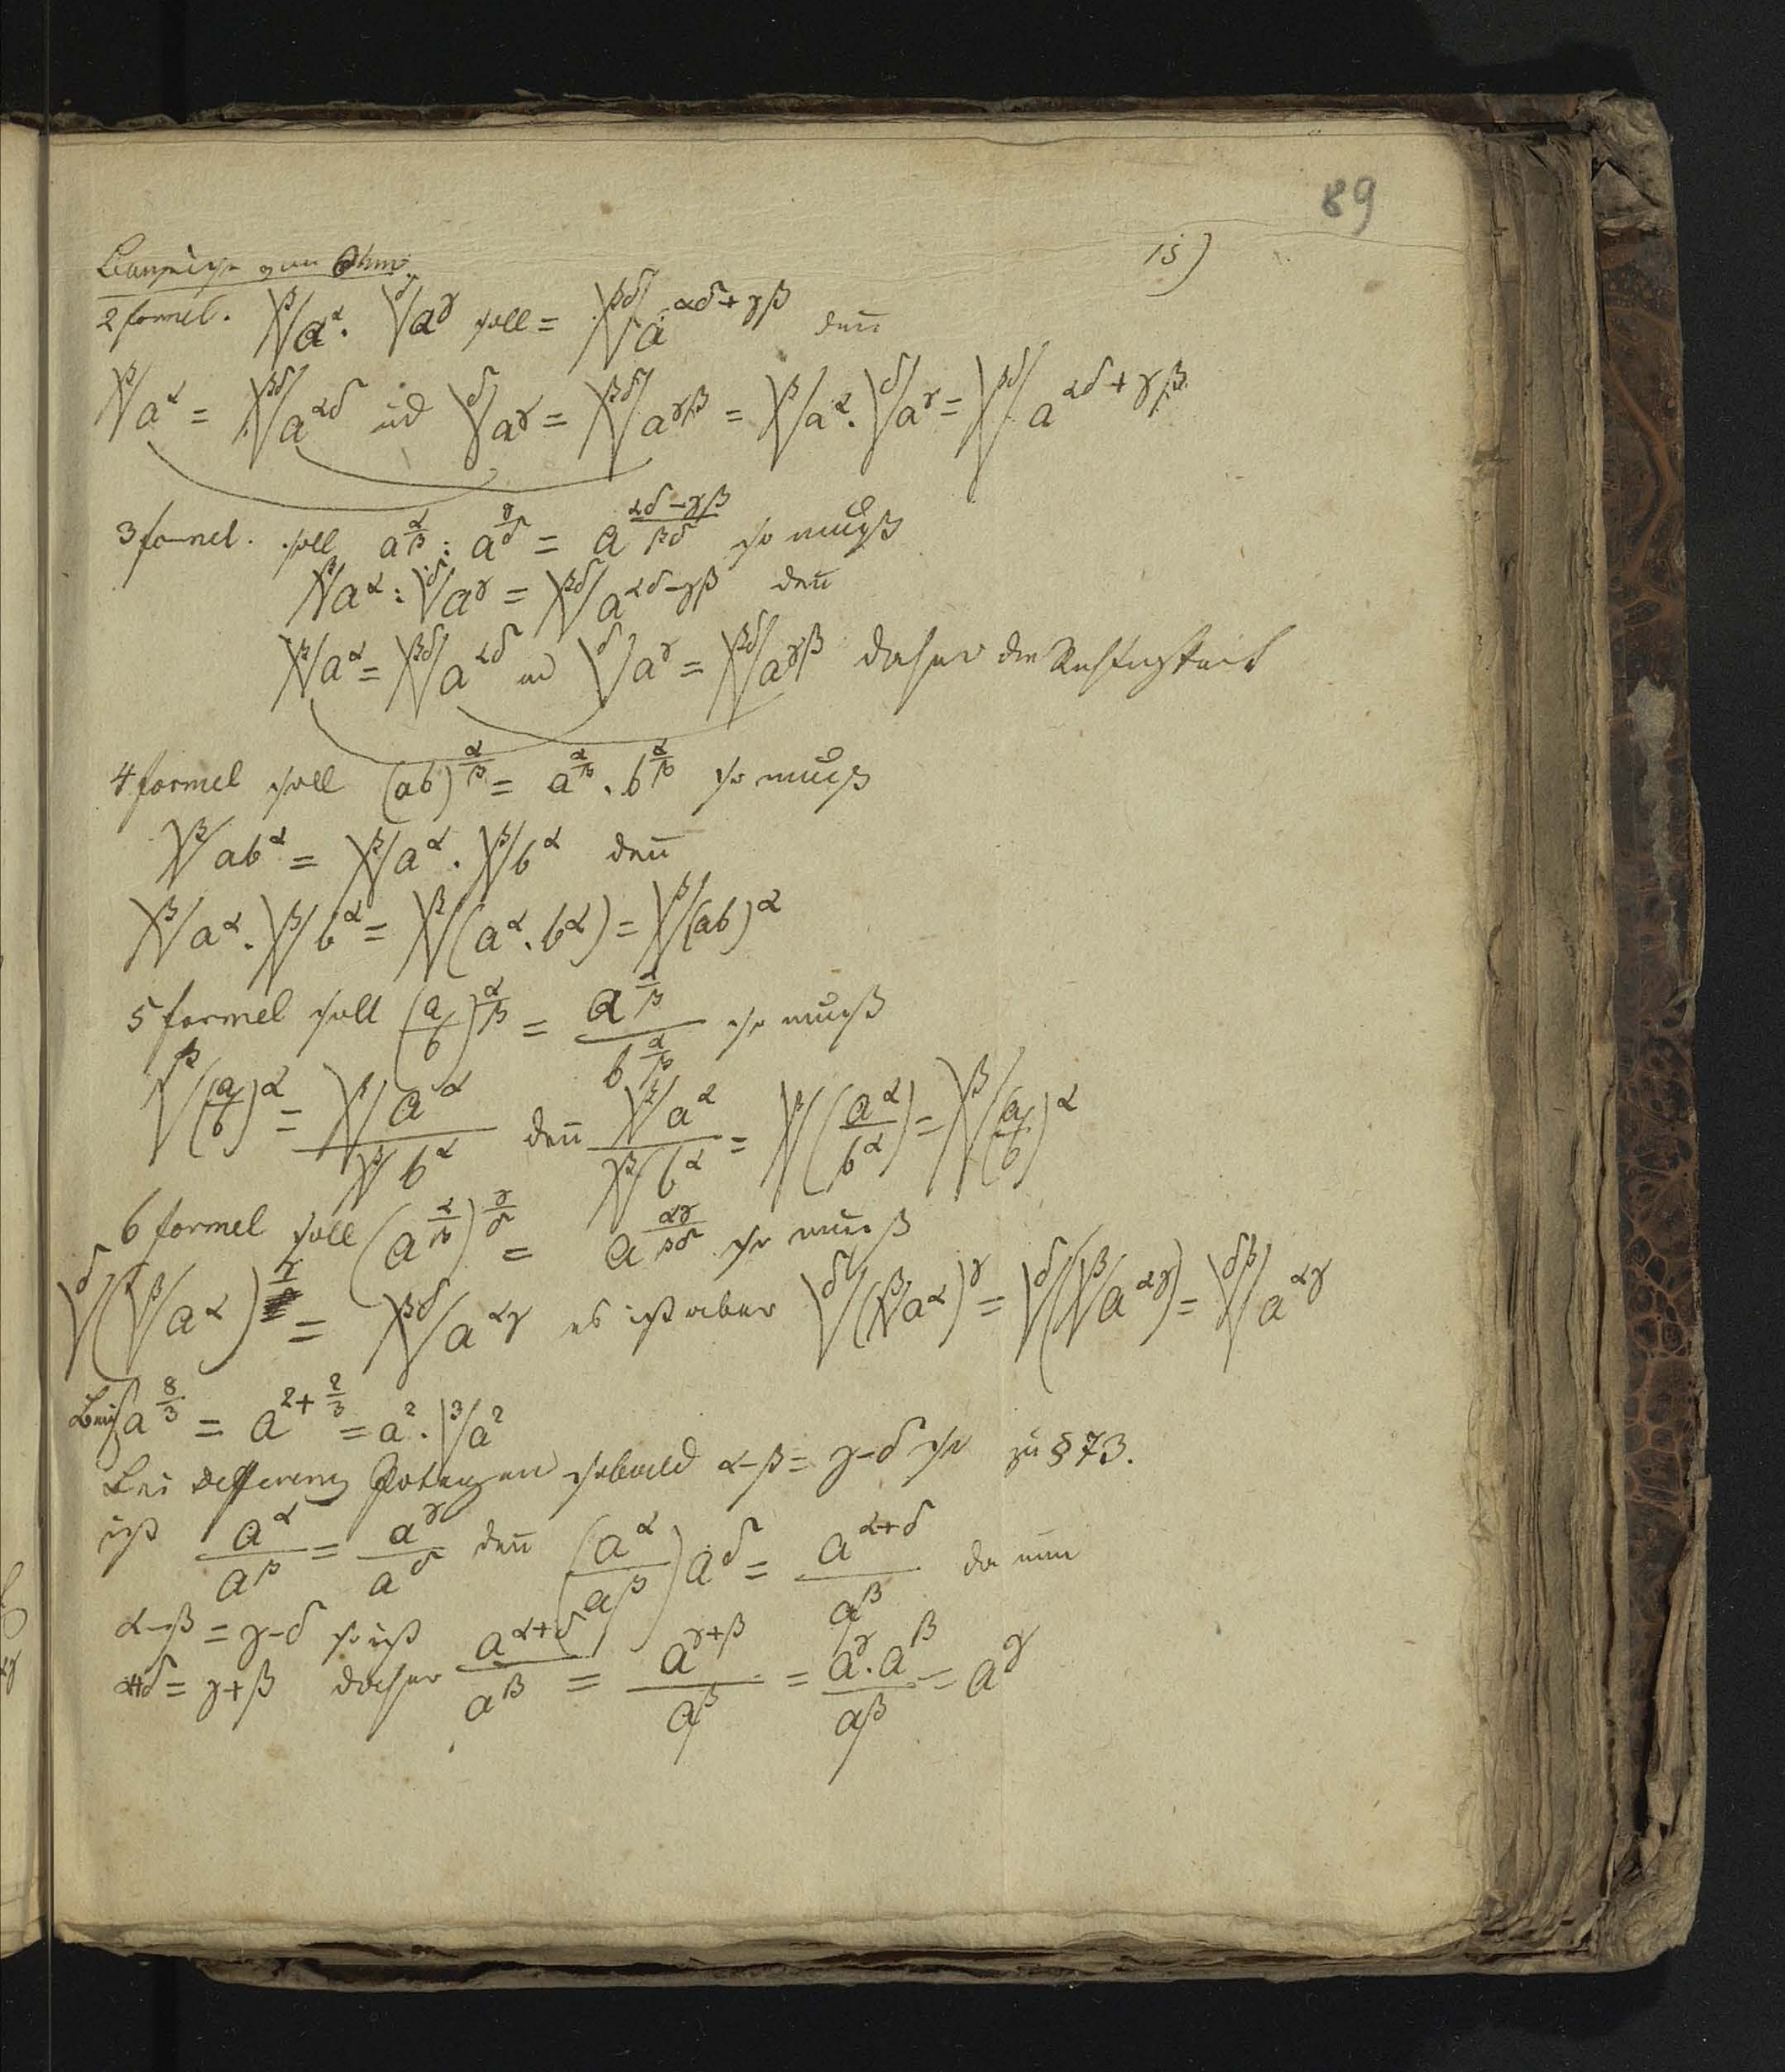 89
15)
Beweise zum Ohm.
2 formel. ᵝ√a^α · ᵟ√a^γ soll = ᵝᵟ√a^(αδ+γβ) den̄
ᵝ√a^α = ᵝᵟ√a^(αδ) ud ᵟ√a^γ = ᵝᵟ√a^(γβ) = ᵝ√a^α · ᵟ√a^γ = ᵝᵟ√a^(αδ+γβ)
3 formel. soll a^(α/β) : a^(γ/δ) = a^((αδ−γβ)/βδ) so muß
ᵝ√a^α : ᵟ√a^γ = ᵝᵟ√a^(αδ−γβ) den̄
ᵝ√a^α = ᵝᵟ√a^(αδ) ud ᵟ√a^γ = ᵝᵟ√a^(γβ) daher die Richtigkeit
4 formel soll (ab)^(α/β) = a^(α/β) · b^(α/β) so muß
ᵝ√ab^α = ᵝ√a^α · ᵝ√b^α den̄
ᵝ√a^α · ᵝ√b^α = ᵝ√(a^α · b^α) = ᵝ√(ab)^α
5 formel soll (a/b)^(α/β) = a^(α/β) / b^(α/β) so muß
ᵝ√(a/b)^α = ᵝ√a^α / ᵝ√b^α den̄ ᵝ√a^α / ᵝ√b^α = ᵝ√(a^α / b^α) = ᵝ√(a/b)^α
6 formel soll (a^(α/β))^(γ/δ) = a^(αγ/βδ) so muß
ᵟ√(ᵝ√a^α)^γ = ᵝᵟ√a^(αγ) es ist aber ᵟ√(ᵝ√a^α)^γ = ᵟ√(ᵝ√a^(αγ)) = ᵟᵝ√a^(αγ)
a^(8/3) = a^(2+2/3) = a^2 · ³√a^2
Bei Differenz Potenzen sobald α−β = γ−δ so zu § 73.
ist a^α / a^β = a^γ / a^δ den̄ (a^α / a^β) a^δ = a^(α+δ) / a^β da nun
α−β = γ−δ so ist
α+δ = γ+β daher a^(α+δ) / a^β = a^(γ+β) / a^β = a^γ · a^β / a^β = a^γ